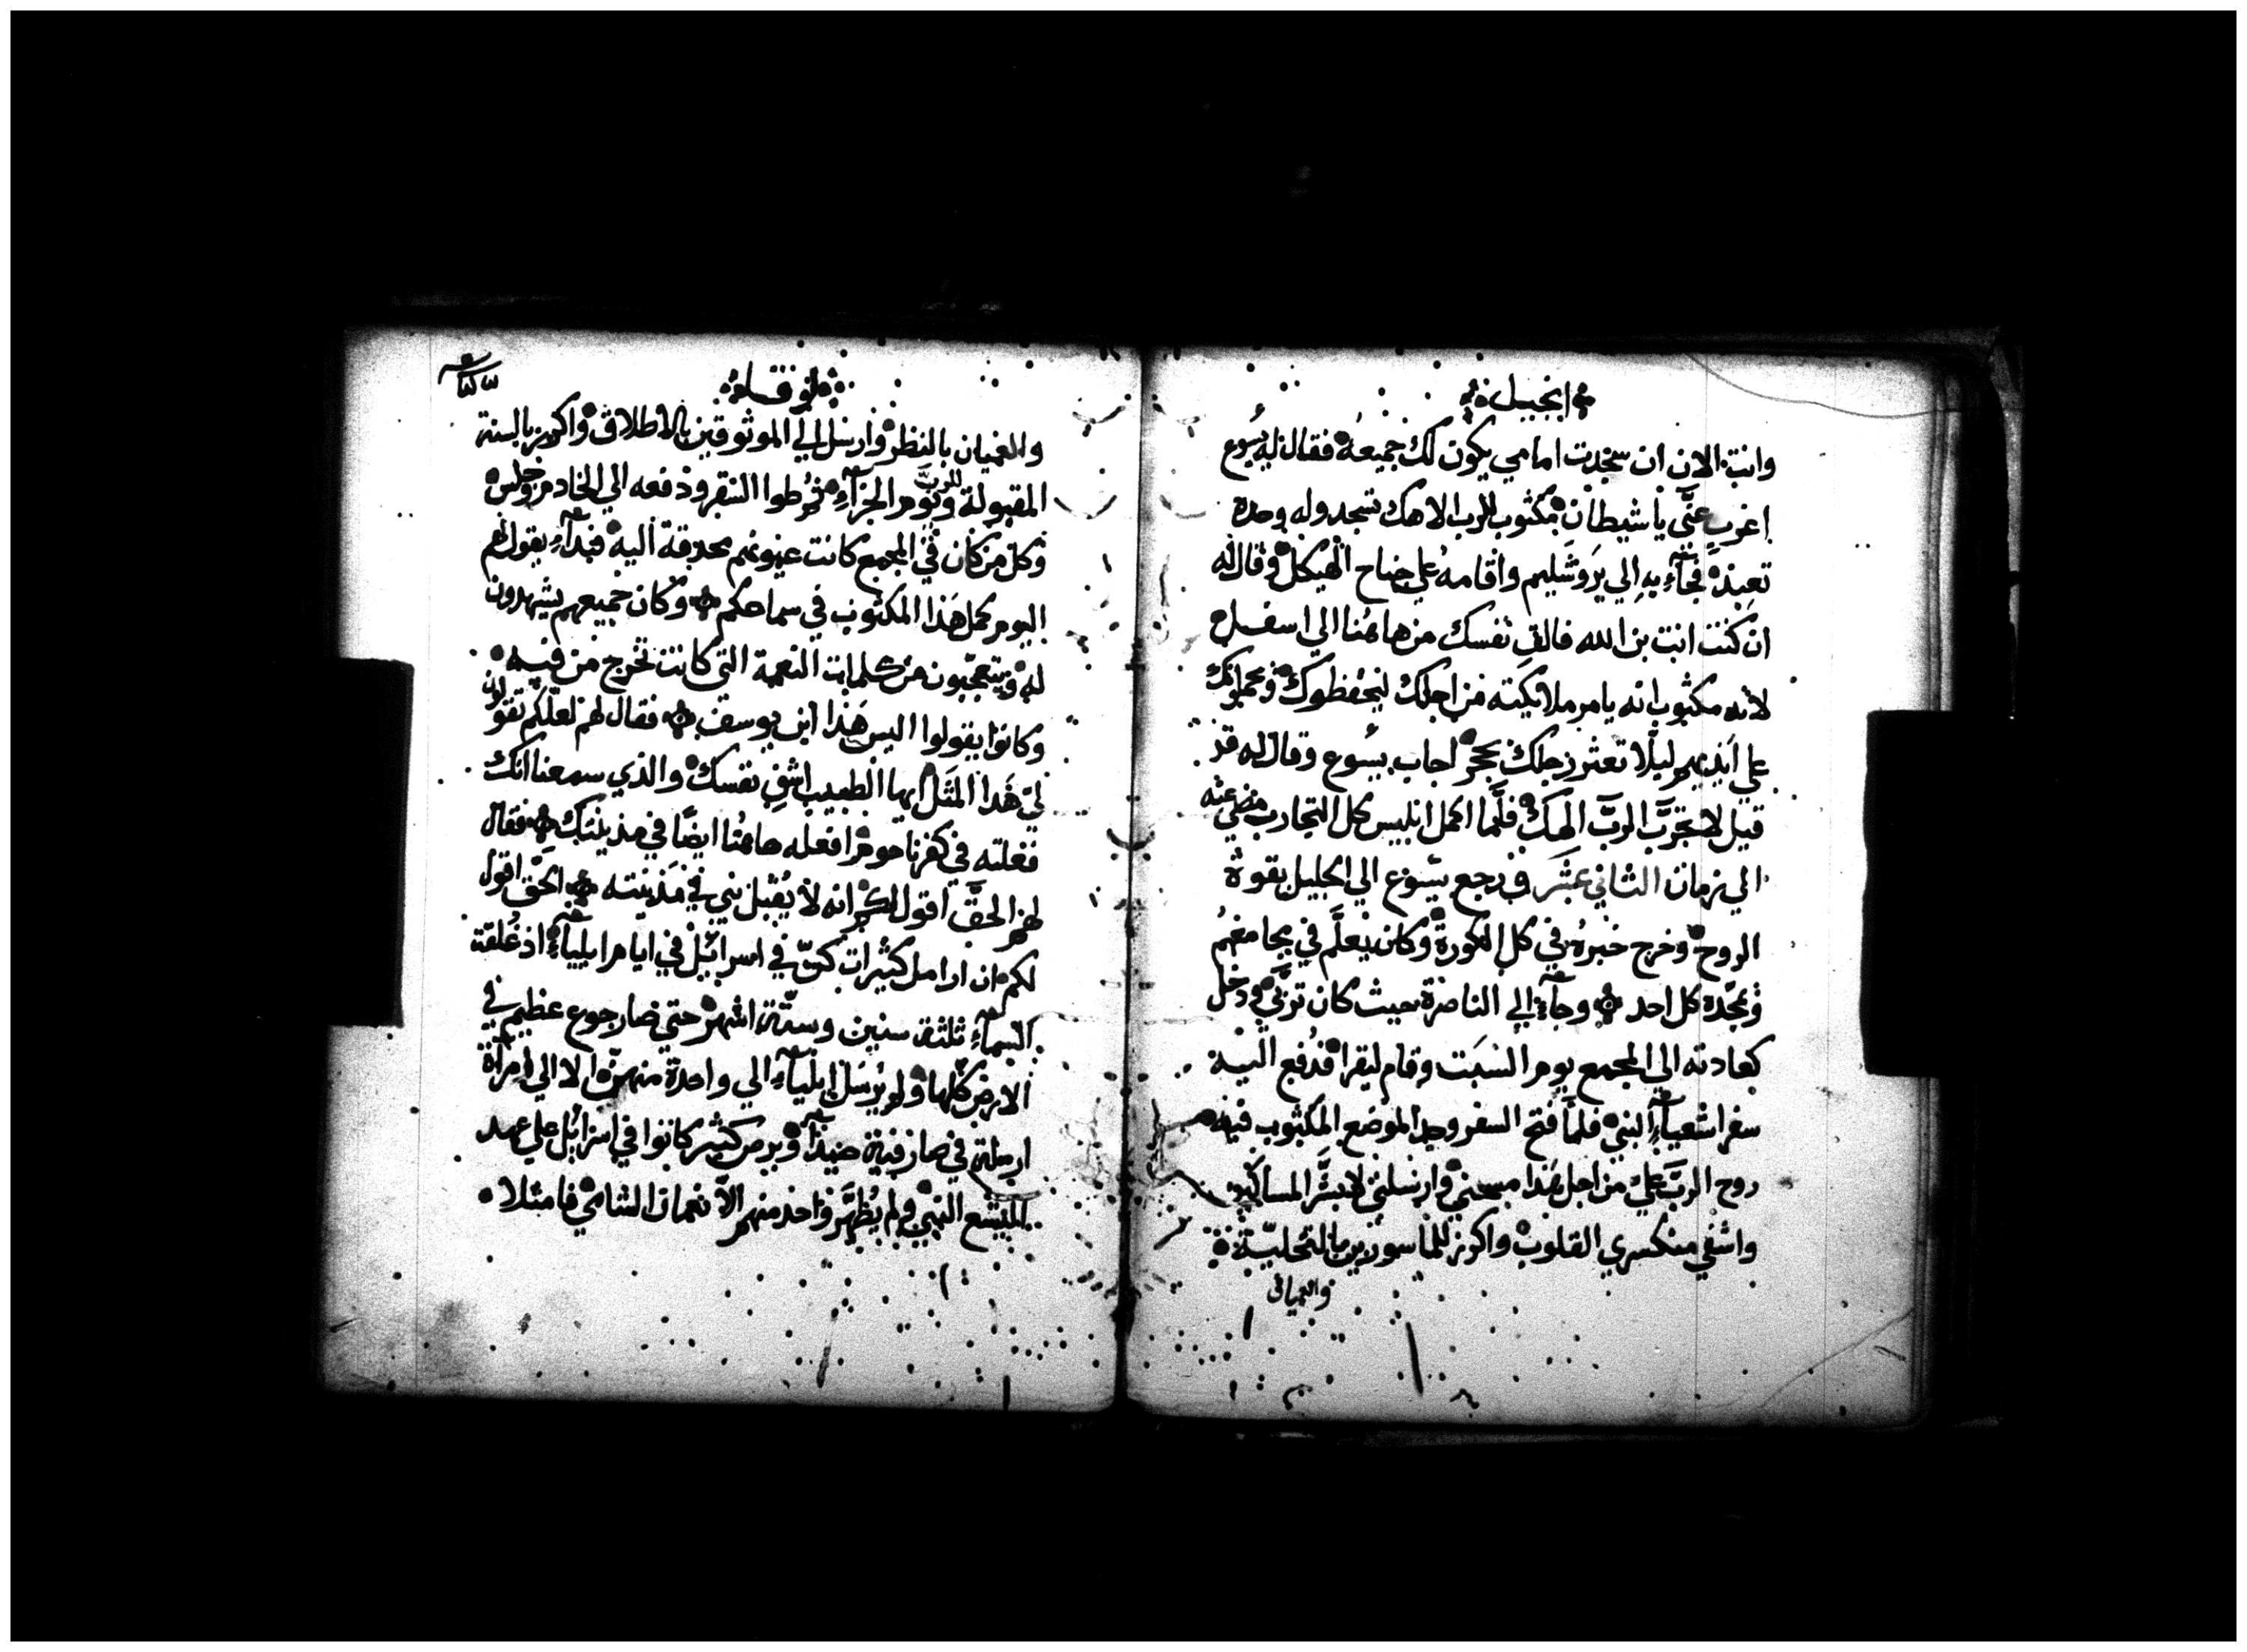 انجيل
وانت الان ان سجدت امامي يكون لك جميعه فقال له يسوع
اغرب عنّي يا شيطان مكتوب للرب الاهك تسجد وله وحده
تعبد فجآءِ به الي يروشليم واقامه علي جناح الهيكل وقال له
ان كنت انت بن الله فالق نفسك من هاهنا الي اسفل
لانه مكتوب انه يامر ملايكته من اجلك ليحفظوك ويحملونك
علي ايديهم ليلا تعثر رجلك بحجر اجاب يسوع وقال له قد
قيل لا تجرّب الربّ الهك فلمّا اكمل ابليس كل التجارب مضي عنه
الي زمان الثاني عشر فرجع يسوع الي الجليل بقوة
الروح وخرج خبره في كل الكورة وكان يعلّم في مجامعهم
ويمجّده كل احد وجآءِ الي الناصرة حيث كان تربّي ودخل
كعادته الي المجمع يوم السبت وقام ليقرا فدفع اليه
سفر اشعيآءِ النبي فلمّا فتح السفر وجد الموضع المكتوب فيه
روح الربّ عليّ من اجل هذا مسحني وارسلني لابشّر المساكين
واشفي منكسري القلوب واكرز للماسورين بالتخليّة
والعميان
لوقا
وللعميان بالنظر وارسل الي الموثوقين بالاطلاق واكرز بالسنة
المقبولة للربّ ويوم الجزآءِ ثم طوا السفر ودفعه الي الخادم وجلس
وكل من كان في المجمع كانت عيونهم محدقة اليه فبدآءِ يقول لهم
اليوم كمل هذا المكتوب في سماعكم وكان جميعهم يشهدون
له ويتعجّبون من كلمات النعمة التي كانت تخرج من فيه
وكانوا يقولوا اليس هذا ابن يوسف فقال لهم لعلّكم تقولون
لي هذا المثل ايها الطبيب اشفِ نفسك والذي سمعنا انك
فعلته في كفرناحوم افعله هاهنا ايضًا في مدينتك فقال
لهم الحقّ اقول لكم انه لا يُقبل نبي في مدينته الحق اقول
لكم ان ارامل كثيرات كنّ في اسرائيل في ايام ايلياءِ اذ غُلقت
السمآءِ ثلثة سنين وستّة اشهر حتي صار جوع عظيم في
الارض كلّها ولم يرسل ايليآءِ الي واحدة منهنّ الا الي امراة
ارملة في صارفية صيدا وبرص كثير كانوا في اسرائيل علي عهد
اليشع النبي ولم يُطهّر واحد منهم الاّ نعمان الشامي فامتلا